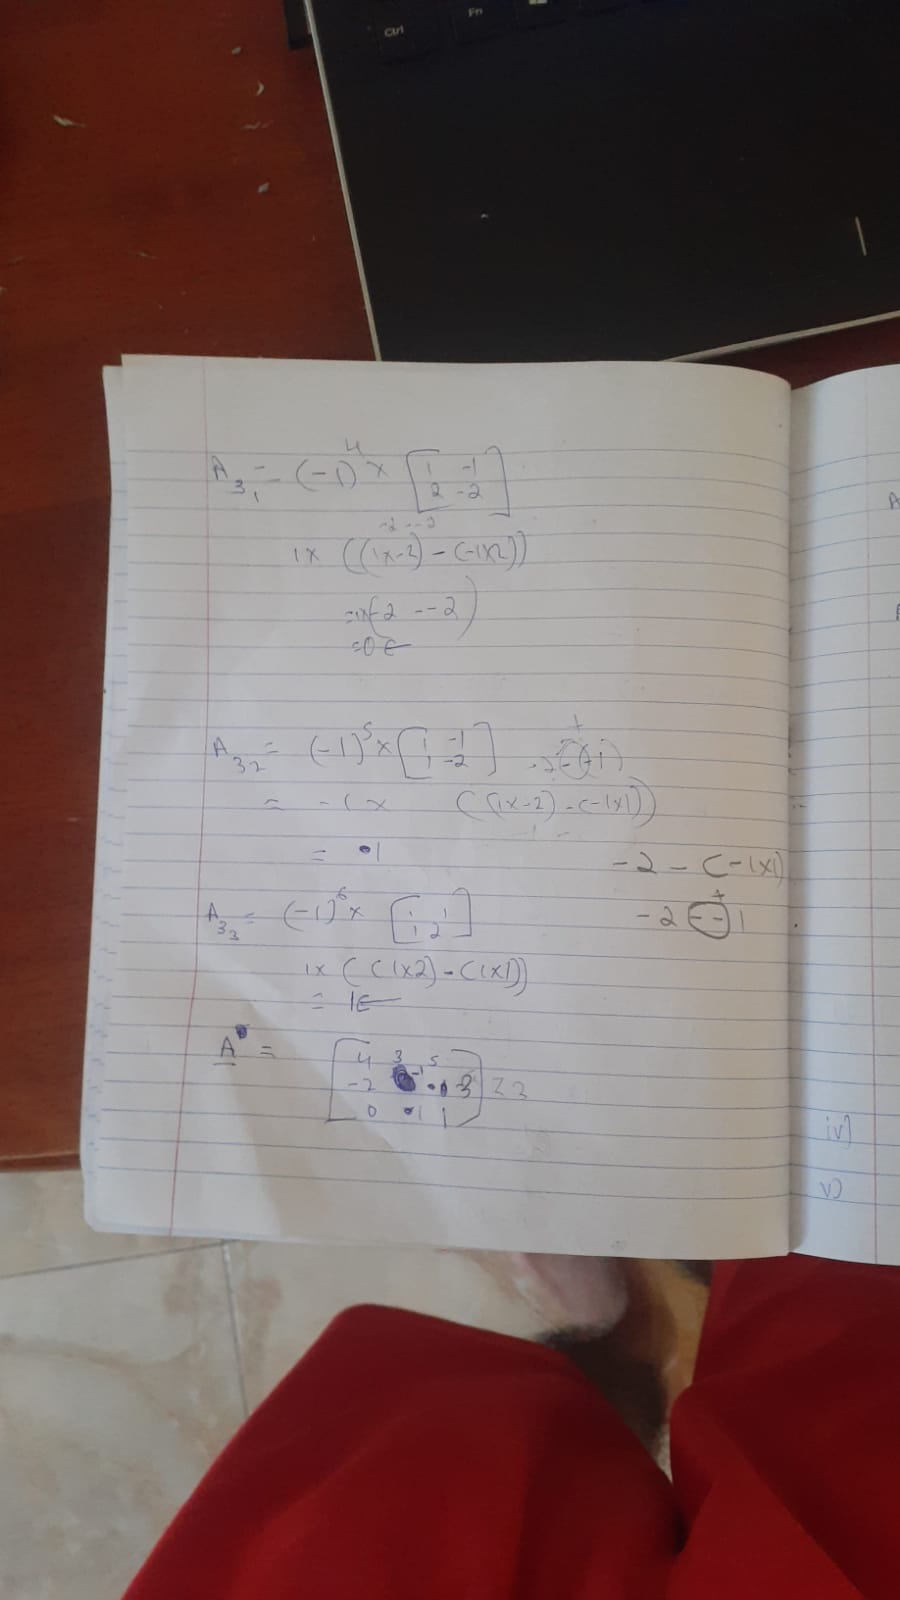 Ctrl
Fn
A₃₁ = (-1)⁴ × [1 -1
2 -2]
-2 - -2
1× ((1×-2) - (-1×2))
=1×(-2 --2)
=0 ←
A₃₂ = (-1)⁵ × [1 -1
1 -2]
= -1 × ((1×-2) - (-1×1))
= 1
-2 - (-1×1)
+
-2 - - 1
A₃₃ = (-1)⁶ × [1 1
1 2]
1× ((1×2) - (1×1))
= 1 ←
A =
[4 3 5
-2 -1 3] 33
0 1 1
iv)
v)